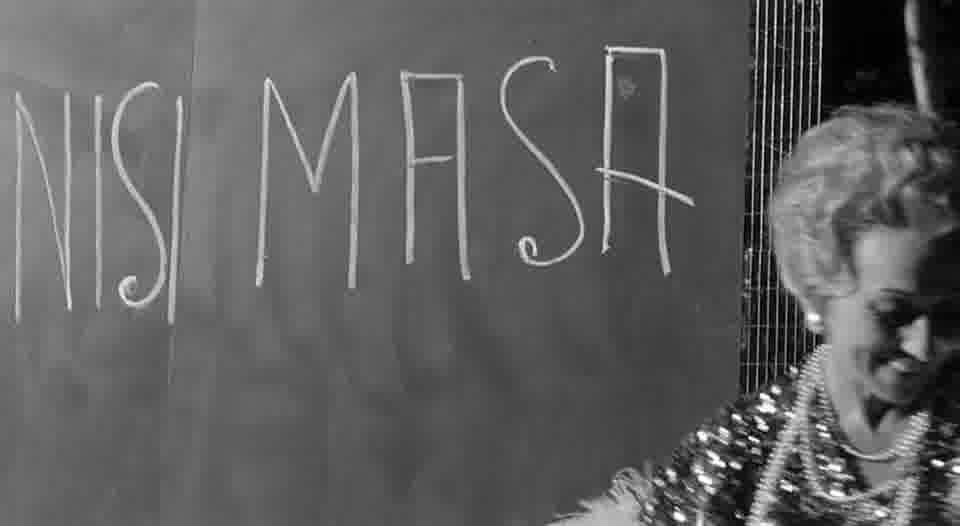 NISI MASA